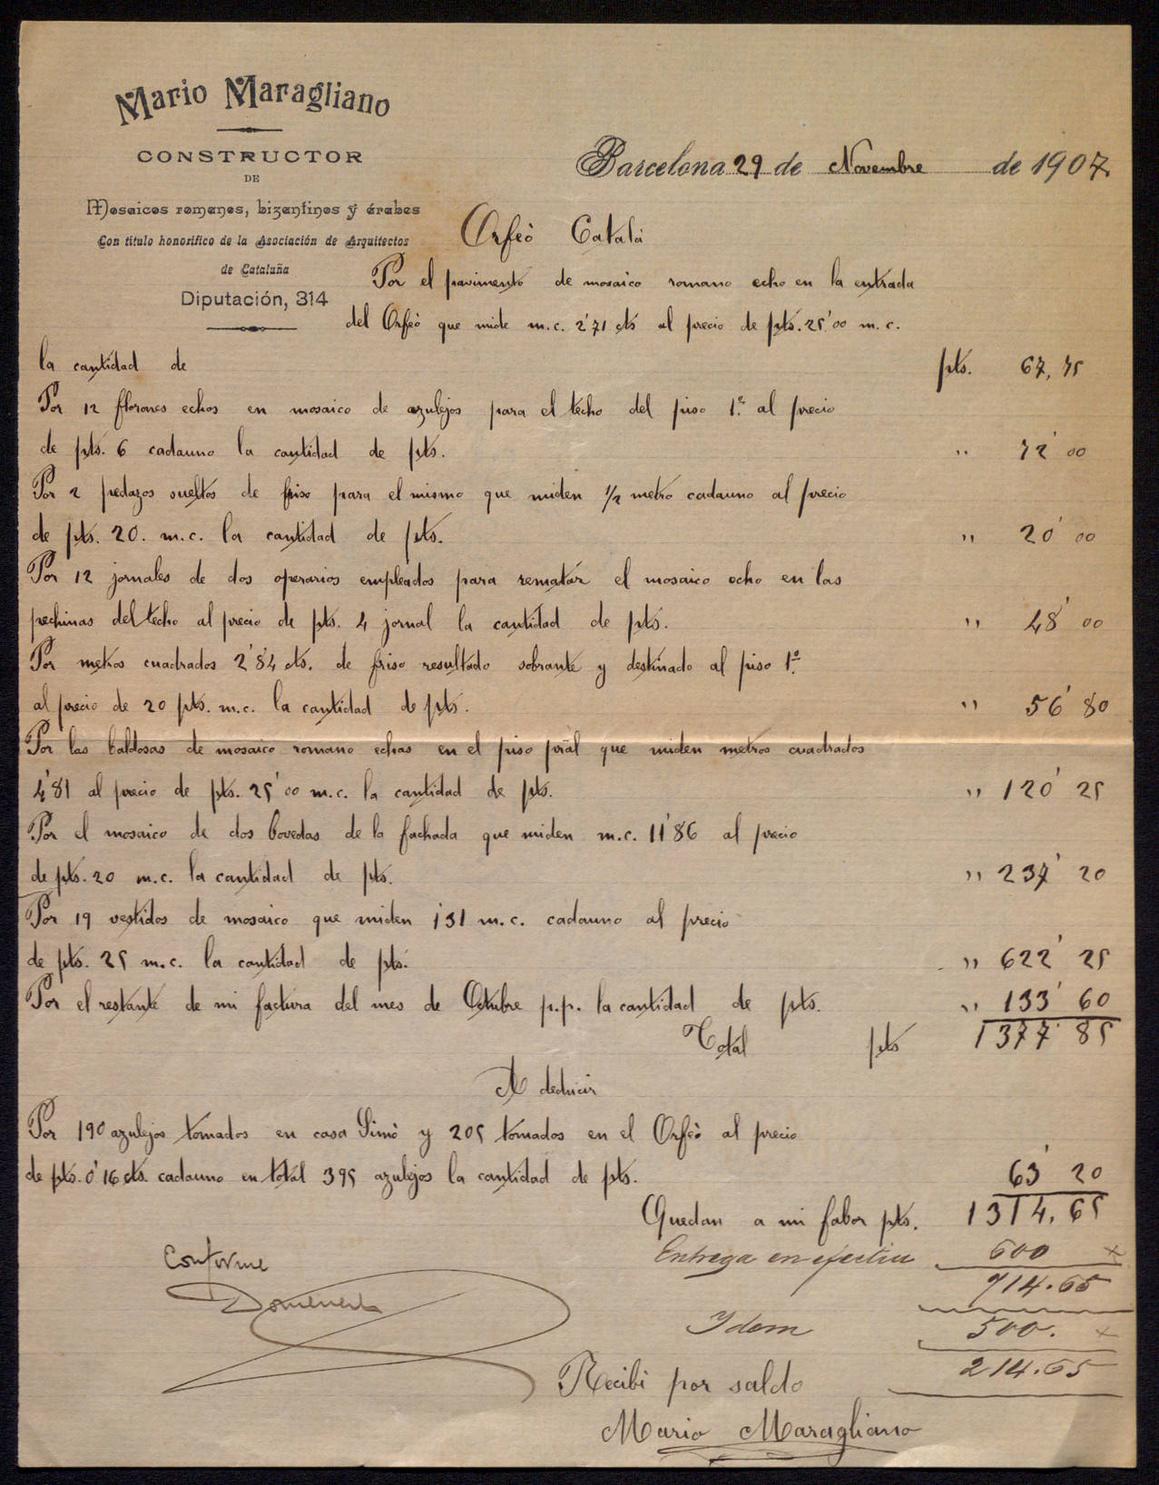 Mario Maragliano
CONSTRUCTOR
DE
Mosaicos romanos, bizantinos y árabes
Con titulo honorifico de la Asociación de Arquitectos
de Cataluña
Diputación, 314
Barcelona 29 de Novembre de 1907.
Orfeò Català
Por el pavimento de mosaico romano echo en la entrada
del Orfeò que mide m.c. 2'71 cts al precio de pts. 25'00 m.c.
la cantidad de pts. 67,75
Por 12 florones echos en mosaico de azulejos para el techo del piso 1.º al precio
de pts. 6 cadauno la cantidad de pts. " 72'00
Por 2 pedazos sueltos de friso para el mismo que miden 1/2 metro cadauno al precio
de pts. 20. m.c. la cantidad de pts. " 20'00
Por 12 jornales de dos operarios empleados para rematar el mosaico echo en las
pechinas del techo al precio de pts. 4 jornal la cantidad de pts. " 48'00
Por metros cuadrados 2'84 cts. de friso resultado sobrante y destinado al piso 1.º
al precio de 20 pts. m.c. la cantidad de pts. " 56'80
Por las baldosas de mosaico romano echas en el piso pral que miden metros cuadrados
4'81 al precio de pts. 25'00 m.c. la cantidad de pts. " 120'25
Por el mosaico de dos bovedas de la fachada que miden m.c. 11'86 al precio
de pts. 20 m.c. la cantidad de pts. " 237'20
Por 19 vestidos de mosaico que miden 1'31 m.c. cadauno al precio
de pts. 25 m.c. la cantidad de pts. " 622'25
Por el restante de mi factura del mes de Octubre p.p. la cantidad de pts. " 133'60
Total pts 1377'85
A deducir
Por 190 azulejos tomados en casa Simò y 205 tomados en el Orfeò al precio
de pts. 0'16 cts. cadauno en total 395 azulejos la cantidad de pts. 63'20
Quedan a mi fabor pts. 1314,65
Entrega en efectiu 600 x
714.65
Idem 500. x
214.65
Conforme
Domenech
Recibi por saldo
Mario Maragliano